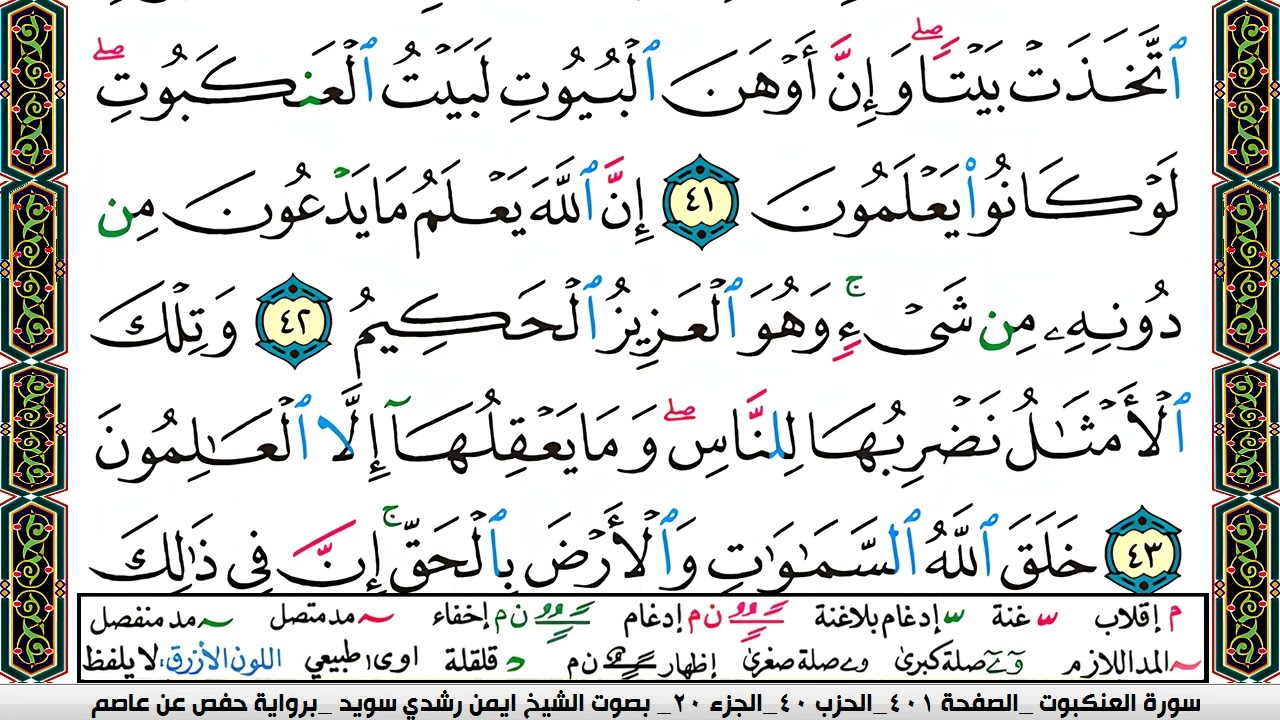 ٱتَّخَذَتْ بَيْتًا ۖ وَإِنَّ أَوْهَنَ ٱلْبُيُوتِ لَبَيْتُ ٱلْعَنكَبُوتِ ۖ
لَوْ كَانُوا۟ يَعْلَمُونَ ٤١ إِنَّ ٱللَّهَ يَعْلَمُ مَا يَدْعُونَ مِن
دُونِهِۦ مِن شَىْءٍ ۚ وَهُوَ ٱلْعَزِيزُ ٱلْحَكِيمُ ٤٢ وَتِلْكَ
ٱلْأَمْثَـٰلُ نَضْرِبُهَا لِلنَّاسِ ۖ وَمَا يَعْقِلُهَآ إِلَّا ٱلْعَـٰلِمُونَ
٤٣ خَلَقَ ٱللَّهُ ٱلسَّمَـٰوَٰتِ وَٱلْأَرْضَ بِٱلْحَقِّ ۚ إِنَّ فِى ذَٰلِكَ
م إقلاب غنة إدغام بلاغنة ن م إدغام ن م إخفاء مد متصل مد منفصل
المد اللازم صلة كبرى صلة صغرى إظهار ن م قلقلة اوى طبيعي اللون الأزرق، لا يلفظ
سورة العنكبوت _الصفحة ٤٠١_الحزب ٤٠_الجزء ٢٠_ بصوت الشيخ ايمن رشدي سويد _برواية حفص عن عاصم